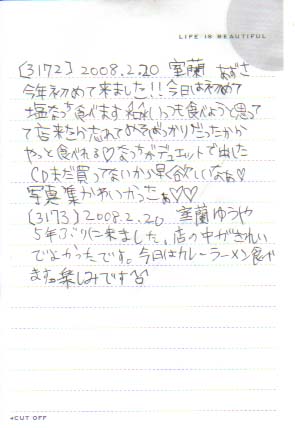 LIFE IS BEAUTIFUL
(3172) 2008.2.20 室蘭 あずさ
今年初めて来ました!!今日ははじめて
塩なっち食べます いつも食べようと思って
て店来たら忘れてみそばっかりだったから
やっと食べれる♡なっちがデュエットで出した
CDまだ買ってないから早く欲しいなぁ♡
写真集かわいかったぁ♡♡
(3173) 2008.2.20 室蘭ゆうや
5年ぶりに来ました。店の中がきれい
でよかったです。今日はカレーラーメン食べ
ます。楽しみです
CUT OFF